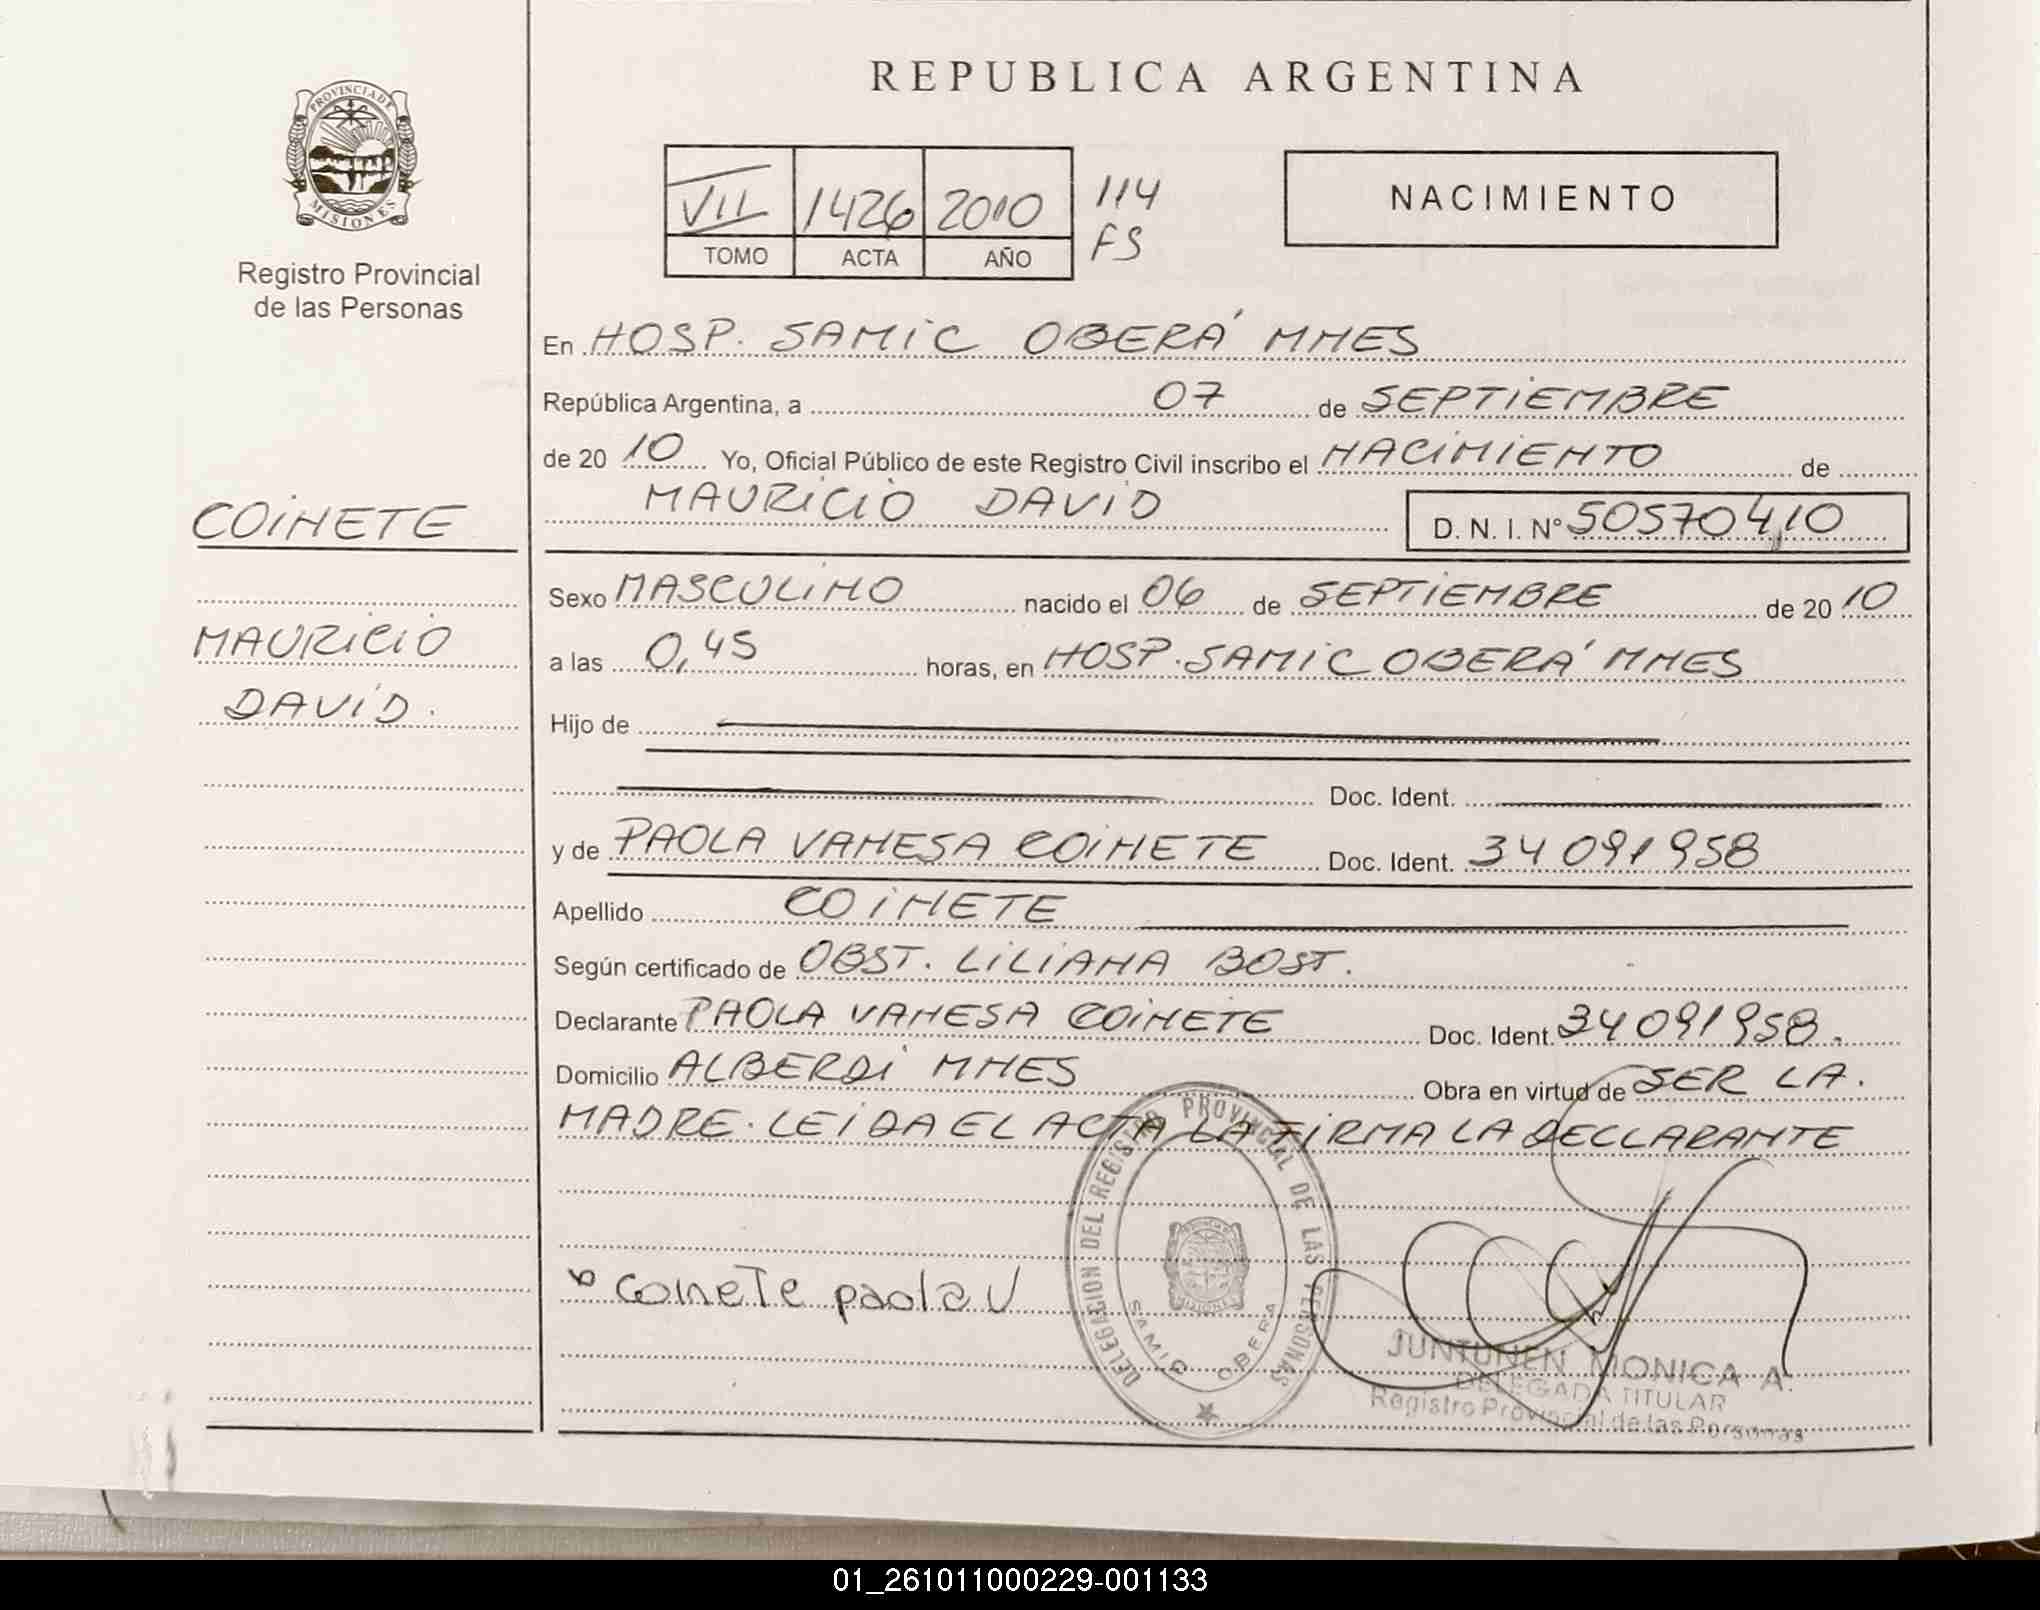 REPUBLICA ARGENTINA
PROVINCIA DE
MISIONES
Registro Provincial
de las Personas
VII 1426 2010 114
TOMO ACTA AÑO FS
NACIMIENTO
En HOSP. SAMIC OBERÁ MNES
República Argentina, a 07 de SEPTIEMBRE
de 20 10 Yo, Oficial Público de este Registro Civil inscribo el NACIMIENTO de
MAURICIO DAVID D. N. I. Nº 50570410
COINETE
MAURICIO
DAVID.
Sexo MASCULINO nacido el 06 de SEPTIEMBRE de 20 10
a las 0,45 horas, en HOSP. SAMIC OBERÁ MNES
Hijo de
Doc. Ident.
y de PAOLA VANESA COINETE Doc. Ident. 34091958
Apellido COINETE
Según certificado de OBST. LILIANA BOST.
Declarante PAOLA VANESA COINETE Doc. Ident. 34091958.
Domicilio ALBERDI MNES Obra en virtud de SER LA.
MADRE. LEIDA EL ACTA LA FIRMA LA DECLARANTE
coineTe paola V
DELEGACION DEL REGISTRO PROVINCIAL DE LAS PERSONAS
SAMIC OBERA
JUNTUNEN MONICA A.
DELEGADA TITULAR
Registro Provincial de las Personas
01_261011000229-001133